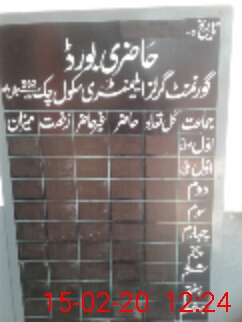 تاریخ
حاضری بورڈ
گورنمنٹ گرلز ایلیمنٹری سکول چک
جماعت کل تعداد حاضر غیر حاضر رخصت میزان
اول
اول
دوم
سوم
چہارم
پنجم
ششم
ہفتم
15-02-20 12:24